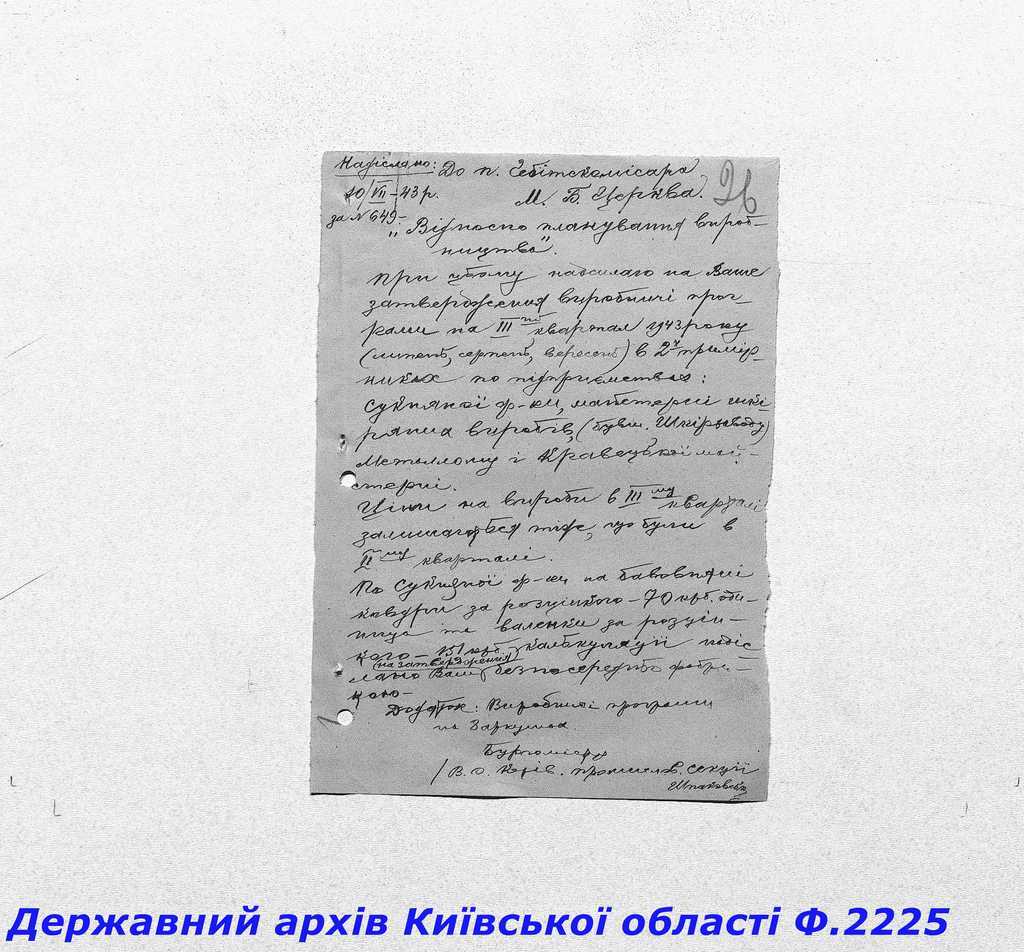 Надіслано: До п. Гебітскомісара 26
10/VII-43 р. М. Б. Церква.
за № 649-
"Відносно планування вироб-
ництва".
При цьому надсилаю на Ваше
затвердження виробничі прог-
рами на III ий квартал 1943 року
(липень, серпень, вересень) в 2х примір-
никах по підприємствах:
Сукняної ф-ки, майстерні шкі-
ряних виробів, (бувш. Шкірзаводу)
Металлому і Кравецької май-
стерні.
Ціни на вироби в III му кварталі
залишаються тіж, що були в
II му кварталі.
По Сукняній ф-ки на бавовняні
ковдри за розцінкою - 70 крб. оди-
ниця та валенки за розцін-
кою - 151 крб. калькуляції надіс-
(на затвердження)
лано Вам безпосередньо фабри-
кою-
Додаток: Виробничі програми
на аркушах.
Бургомістр
/В. о. Керів. промислов. секції
Шпаковськ
Державний архів Київської області Ф.2225